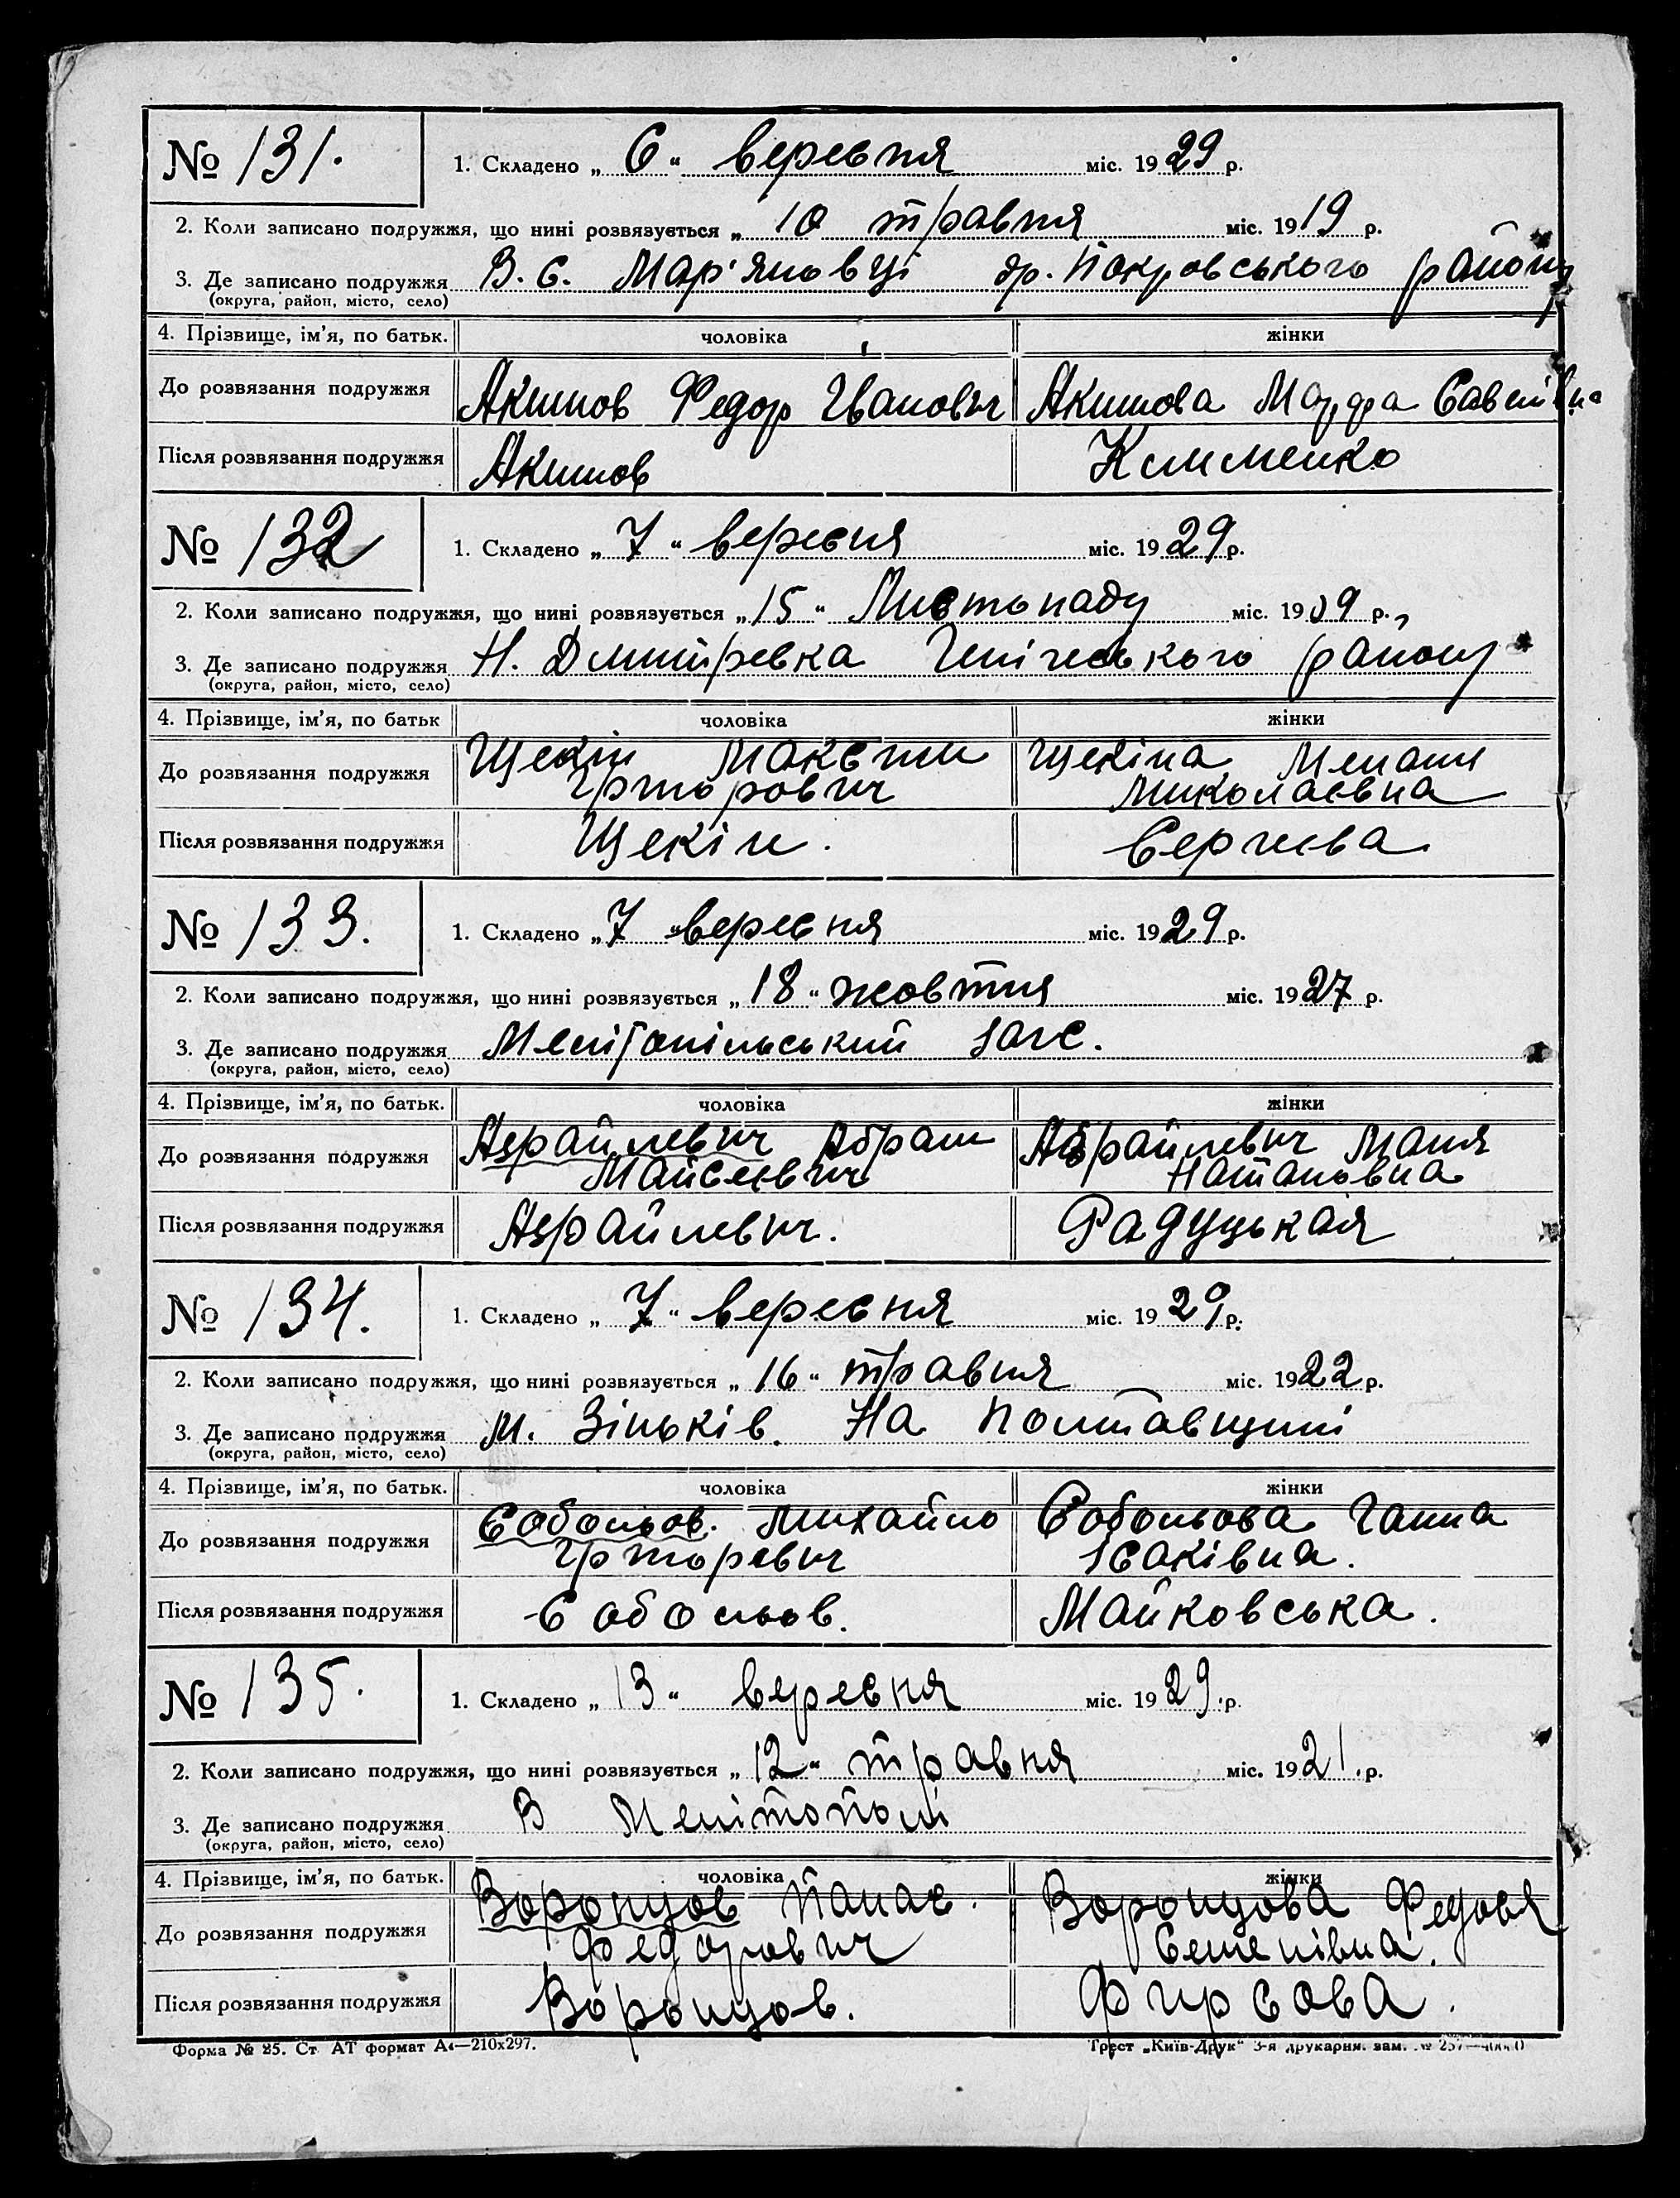 № 131. 1. Складено „ 6 “ вересня міс. 19 29 р.
2. Коли записано подружжя, що нині розвязується „ 10 травня міс. 19 19 р.
3. Де записано подружжя В. с. Мар'яновці др. Покровського району
(округа, район, місто, село)
4. Прізвище, ім'я, по батьк. чоловіка жінки
До розвязання подружжя Акимов Федор Іванович Акимова Марфа Савелівна
Після розвязання подружжя Акимов Клименко
№ 132 1. Складено „ 7 “ вересня міс. 19 29 р.
2. Коли записано подружжя, що нині розвязується „ 15 “ Листопаду міс. 19 09 р.,
3. Де записано подружжя Н. Дмитрівка Генічеського району
(округа, район, місто, село)
4. Прізвище, ім'я, по батьк чоловіка жінки
До розвязання подружжя Щекін Максим Щекіна Мелані
Григорович Миколаєвна
Після розвязання подружжя Щекін. Сергієва
№ 133. 1. Складено „ 7 “ вересня міс. 19 29 р.
2. Коли записано подружжя, що нині розвязується „ 18 “ жовтня міс. 19 27 р.
3. Де записано подружжя Мелітопільський загс.
(округа, район, місто, село)
4. Прізвище, ім'я, по батьк. чоловіка жінки
До розвязання подружжя Азрайлевич Абрам Азрайлевич Маня
Майсеєвич Натановна
Після розвязання подружжя Азрайлевич. Радуцькая
№ 134. 1. Складено „ 7 “ вересня міс. 19 29 р.
2. Коли записано подружжя, що нині розвязується „ 16 “ травня міс. 19 22 р.
3. Де записано подружжя м. Зіньків. На Полтавщині
(округа, район, місто, село)
4. Прізвище, ім'я, по батьк. чоловіка жінки
До розвязання подружжя Собольов. Михайло Собольова Ганна
Григорович Ісаківна.
Після розвязання подружжя Собольов. Майковська.
№ 135. 1. Складено „ 13 “ вересня міс. 19 29. р.
2. Коли записано подружжя, що нині розвязується „ 12 “ травня міс. 19 21. р.
3. Де записано подружжя В Мелітополі
(округа, район, місто, село)
4. Прізвище, ім'я, по батьк. чоловіка жінки
До розвязання подружжя Воронцов Панас. Воронцова Федося
Федорович Семенівна.
Після розвязання подружжя Воронцов. Фирсова.
Форма № 25. Ст АТ формат А4—210х297. Трест „Київ-Друк“ 3-я друкарня. зам. № 257